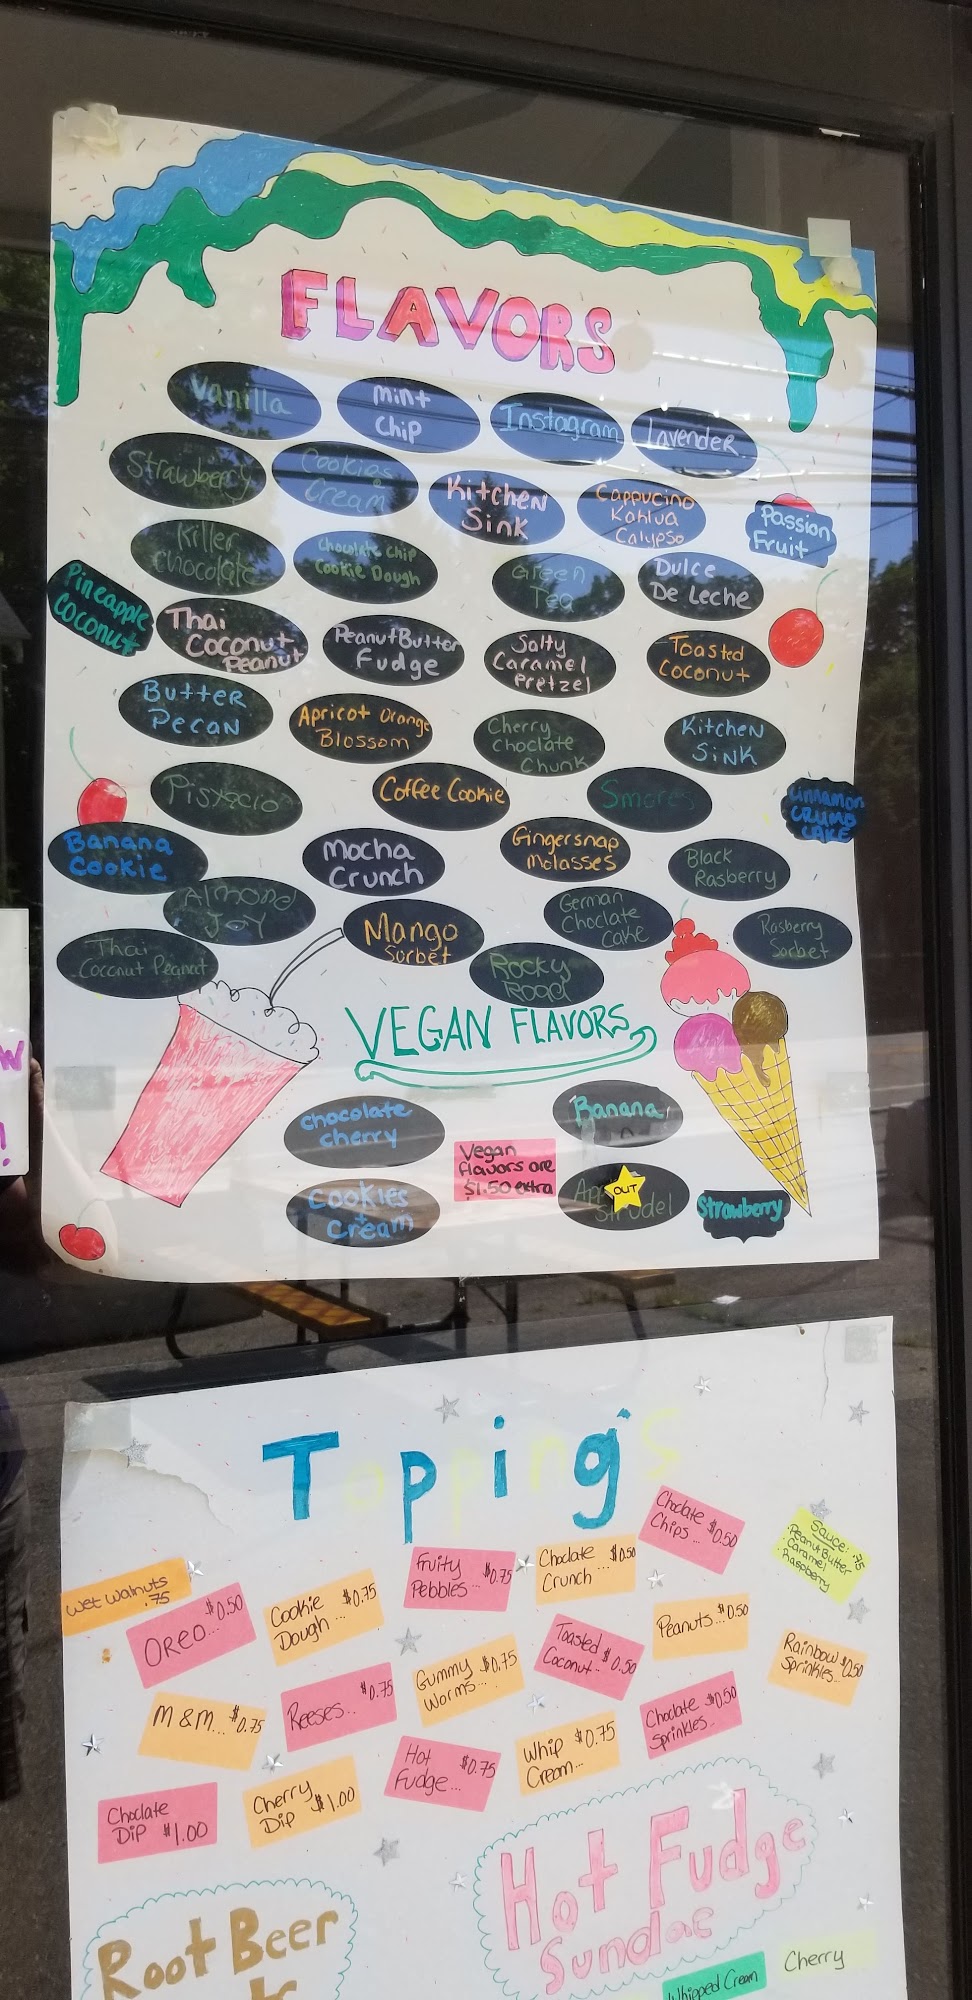 FLAVORS
Vanilla
Mint
Chip
Instagram
Lavender
Strawberry
Cookies
Cream
Kitchen
Sink
Cappucino
Kahlua
Calypso
Passion
Fruit
Killer
Choclate
Chocolate Chip
Cookie Dough
Green
Tea
Dulce
De Leche
Pineapple
Coconut
Thai
Coconut
Peanut
Peanut Butter
Fudge
Salty
Caramel
Pretzel
Toasted
Coconut
Butter
Pecan
Apricot Orange
Blossom
Cherry
Choclate
Chunk
Kitchen
Sink
Pistacio
Coffee Cookie
Smores
Cinnamon
CRUMB
CAKE
Banana
Cookie
Mocha
Crunch
Gingersnap
Molasses
Black
Rasberry
Almond
Joy
Mango
Sorbet
German
Choclate
Cake
Rasberry
Sorbet
Thai
Coconut Peanut
Rocky
Road
VEGAN FLAVORS
Chocolate
Cherry
Banana
Vegan
flavors are
$1.50 extra
Cookies
+
Cream
OUT
Strudel
Strawberry
W
!
Toppings
Wet Walnuts
.75
OREO... $0.50
Cookie $0.75
Dough...
Fruity
Pebbles... $0.75
Choclate $0.50
Crunch
Choclate
Chips... $0.50
Sauce: .75
.Peanut Butter
.Caramel
.Raspberry
M&M... $0.75
Reeses... $0.75
Gummy $0.75
Worms...
Toasted
Coconut... $0.50
Peanuts... $0.50
Rainbow $0.50
Sprinkles...
Choclate
Dip $1.00
Cherry
Dip $1.00
Hot
Fudge... $0.75
Whip $0.75
Cream...
Choclate $0.50
Sprinkles...
Root Beer
Hot Fudge
Sundae
Whipped Cream
Cherry